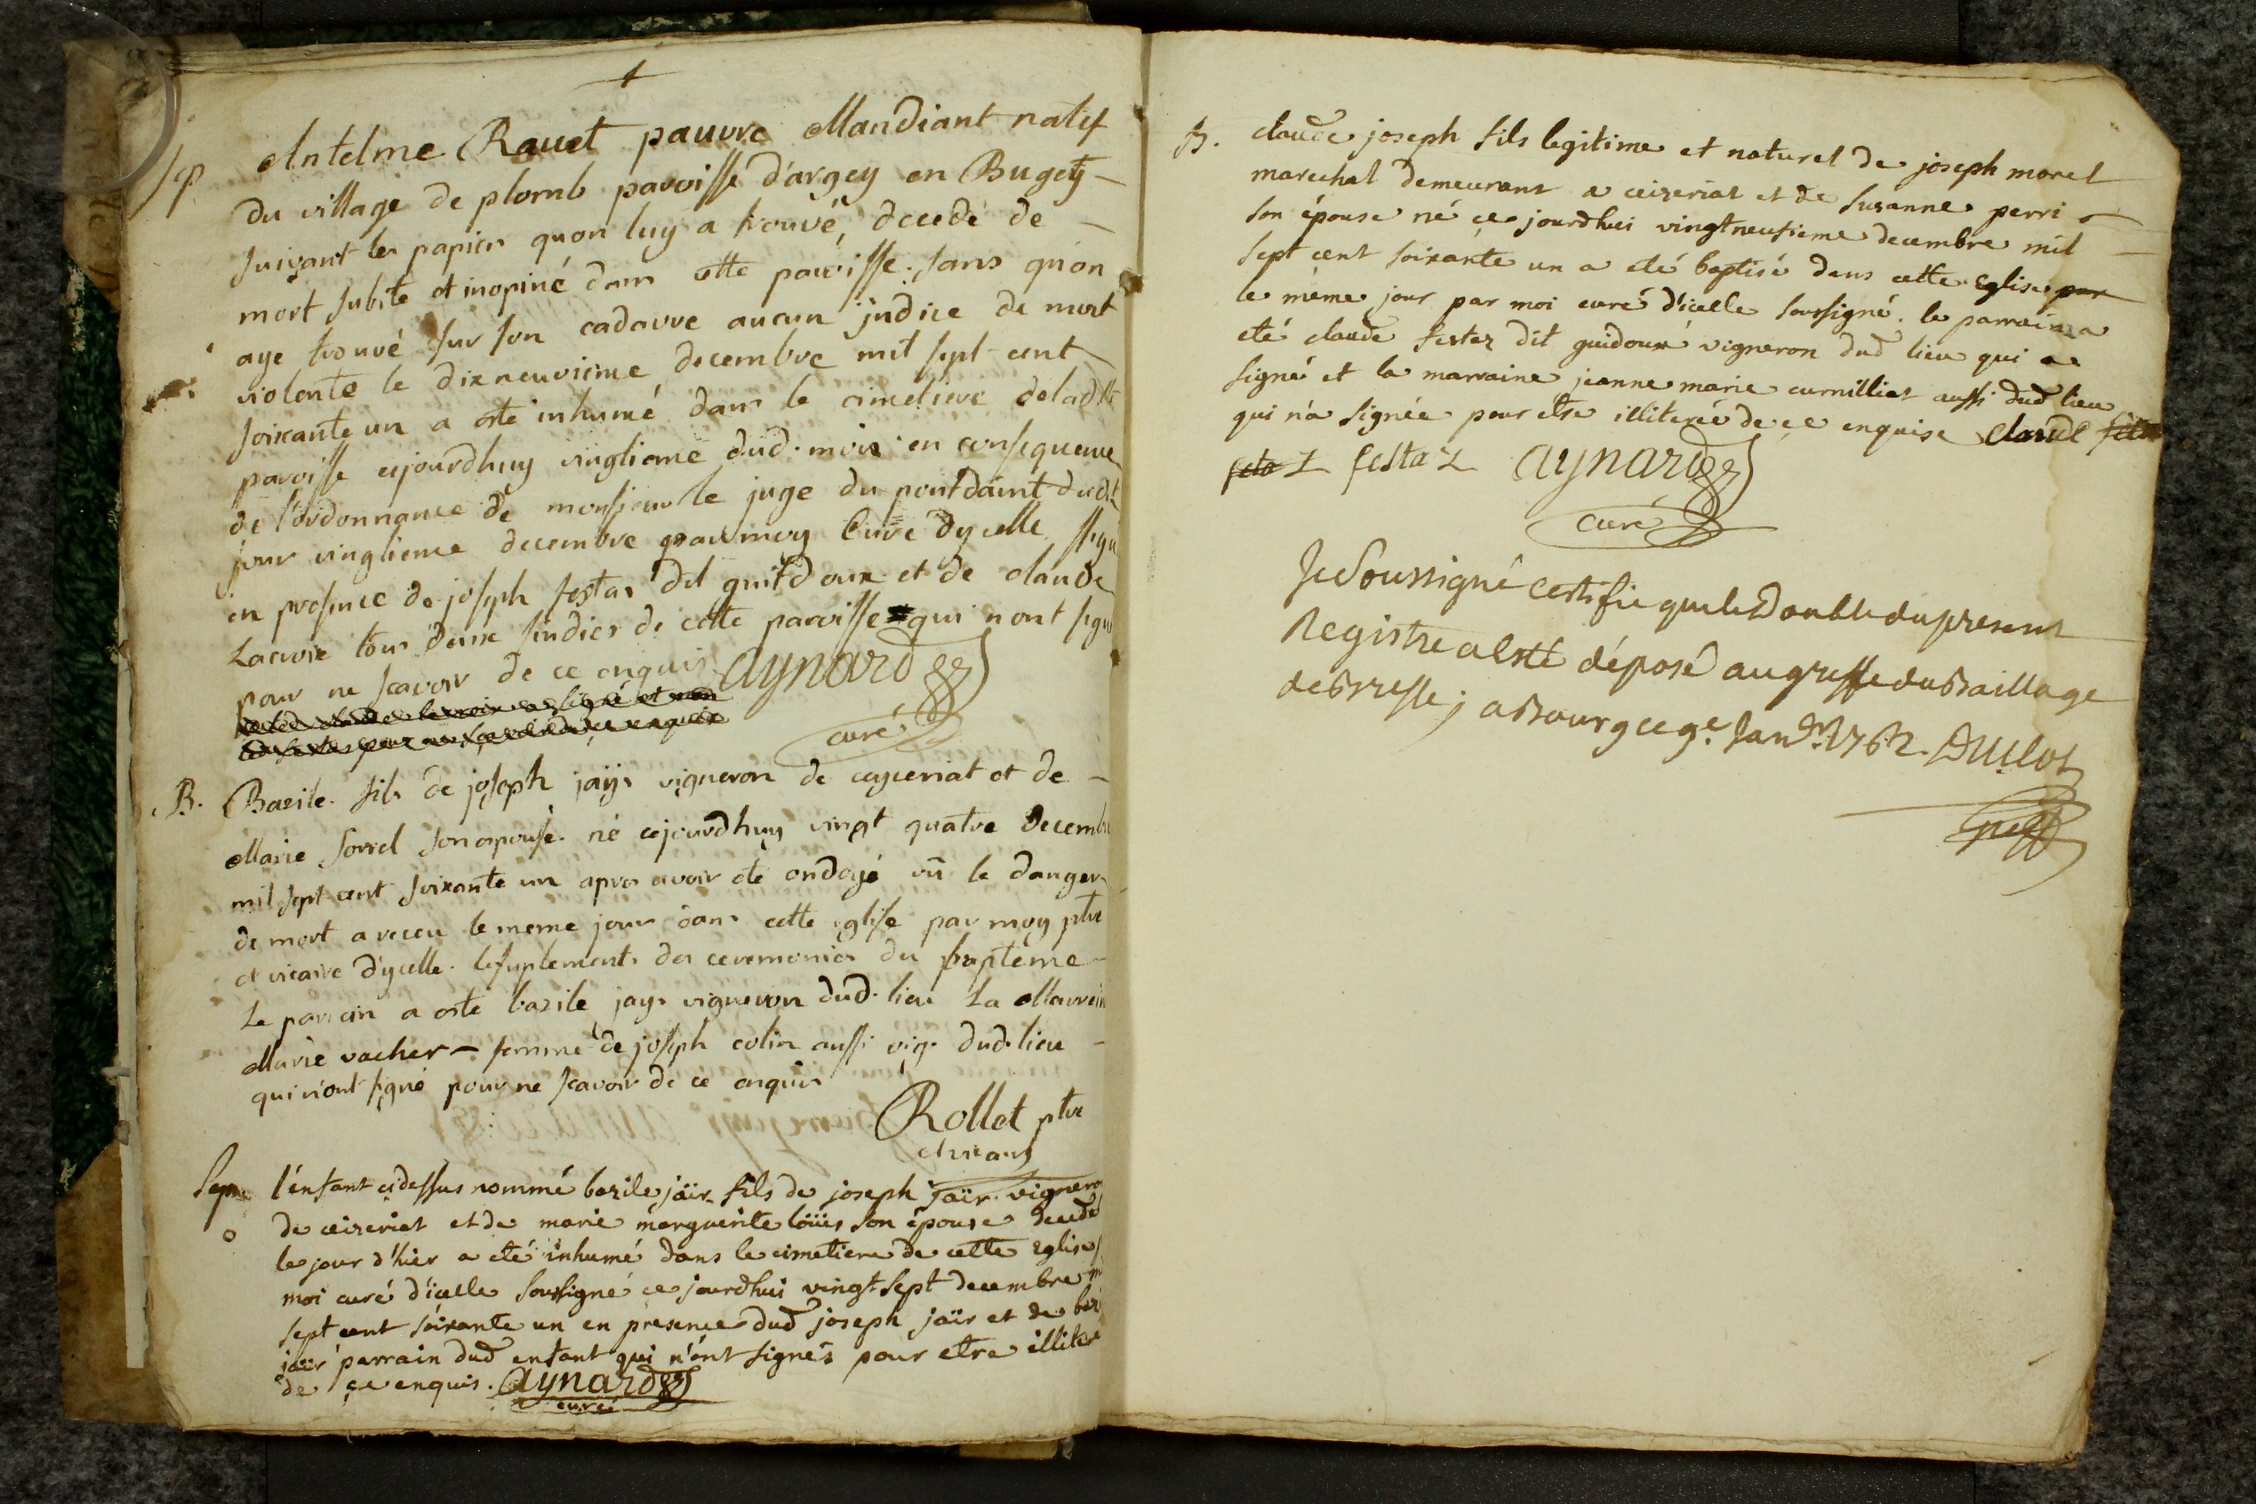 Sep. Antelme Ravet pauvre Mandiant natif
du village de plomb paroisse d'argey en Bugey
suivant les papiers quon luy a trouvé, decedé de
mort subite et inopiné dans cette paroisse. sans qu'on
aye trouvé sur son cadavre aucun jndice de mort
violente le dixneuvieme decembre mil sept cent
soixante un a esté inhumé dans le cimetiere de ladte
paroisse cejourdhuy vingtieme dud. mois en consequence
de l'ordonnance de monsieur le juge du pont d'aint dudt
jour vingtieme decembre par moy Curé dycelle ssigné
en presence de joseph festas dit guitdoux et de claude
Lacroix tous deux sindics de cette paroisse qui n'ont signé
pour ne scavoir de ce enquis Aynard
curé
B. Bazile. fils de joseph jays vigneron de ceyzeriat et de
Marie sorrel son epouse. né cejourdhuy vingt quatre decembre
mil sept cent soixante un apres avoir eté ondoyé vû le danger
de mort a receu le meme jour dans cette eglise par moy ptre
et vicaire d'ycelle. les suplements des ceremonies du bapteme
Le parrain a esté bazile jays vigneron dud. lieu La Marrein
Marie vacher femme de joseph colin aussi vig. dud. lieu
qui n'ont signé pour ne scavoir de ce enquis
Rollet ptre
et vicaire
Sep. l'énfant cidessus nommé bazile jaïr fils de joseph jaïr vigneron
de ceizeriat et de marie marguerite loüis son épouse decedé
le jour d'hier a eté inhumé dans le cimetiere de cette Eglise
moi curé d'icelle soussigné ce jourdhui vingt sept decembre
sept cent soixante un en presence dud joseph jaïr et de bazi
jaïr parrain dud enfant qui n'ont signés pour etre illiteré
de ce enquis. Aynard
curé
B. claude joseph fils legitime et naturel de joseph morel
marechal demeurant a ceizeriat et de Suzanne perri
son épouse né ce jourdhui vingtneufieme decembre mil
sept cent soixante un a eté baptisé dans cette Eglise par
le même jour par moi curé d'icelle soussigné. le parrain a
eté claude festaz dit guidoux vigneron dud lieu qui a
signé et la marraine jeanne marie curnilliat aussi dud lieu
qui n'a signée pour etre illiterée de ce enquise Claude
festaz Aynard
curé
Je Soussigné certifie que le Double du present
Registre a esté déposé au greffe du Baillage
de Bresse, a Bourg ce 9e Janer 1762. Duclos
greff